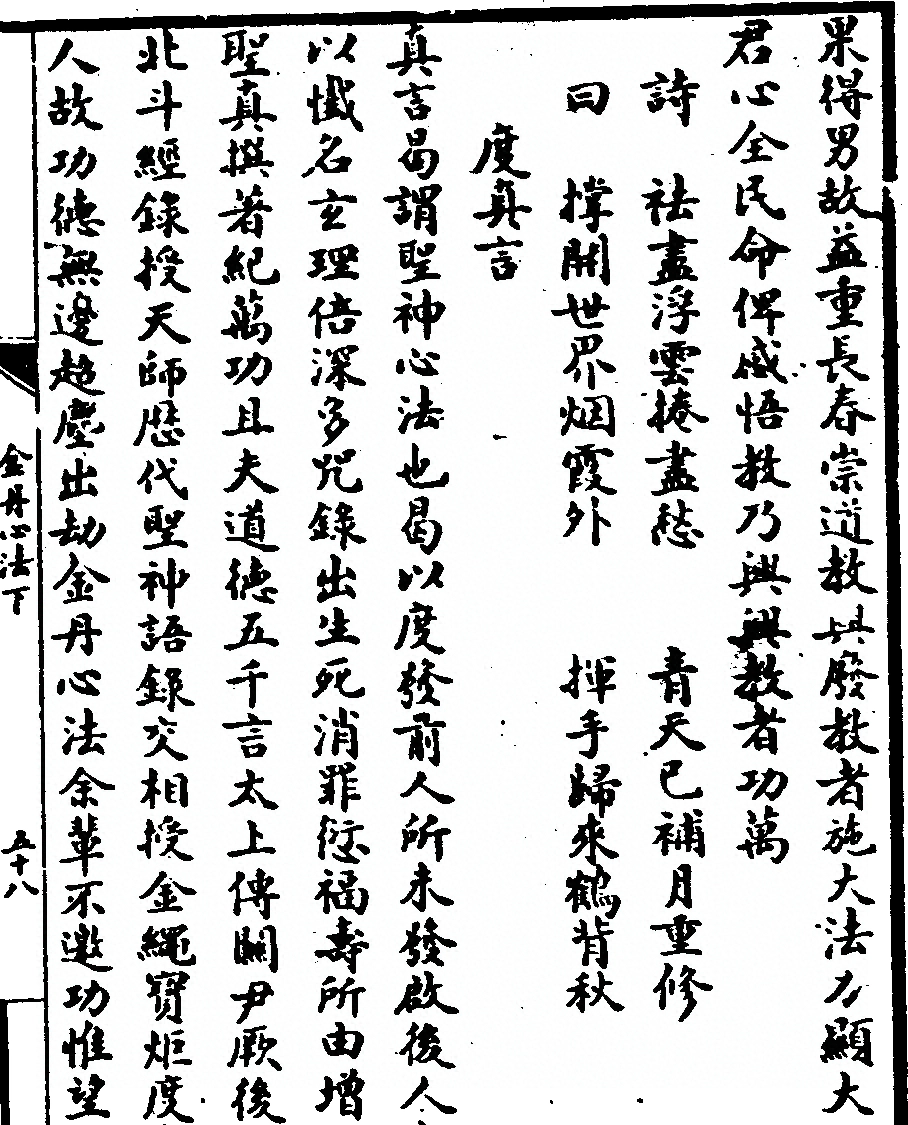 果得男故益重長春崇道教與廢教者施大法力顯大
君心全民命俾感悟教乃興興教者功萬
詩　祛盡浮雲捲盡愁　青天已補月重修
曰　撑開世界烟霞外　揮手歸來鶴背秋
度真言
真言曷謂聖神心法也曷以度發前人所未發啟後人
以懺名玄理倍深多咒錄出生死消罪愆福壽所由增
聖真撰著紀萬功且夫道德五千言太上傳關尹厥後
北斗經錄授天師歷代聖神語錄交相授金繩寶炬度
人故功德無邊超塵出劫金丹心法余輩不邀功惟望
金丹心法下
五十八